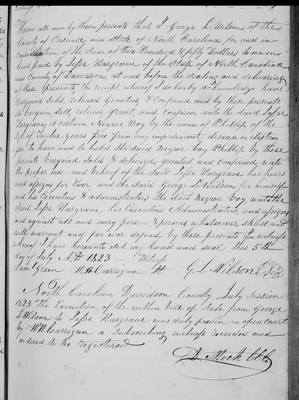 Know all men by these presents that I George L Wilson of the
County of Cabarrus and State of North Carolina for and in con
sideration of the Sum of two Hundred & fifty Dollars to me in
hand paid by Lipse Hargrave of the State of North Carolina
and County of Davidson at and before the sealing and delivering
of these presents the receipt whereof I do hereby acknowledge have
Bargained Sold released Granted & Confirmed and by these presents
do Bargain sell release grant, and confirm unto the said Lipse
Hargrave a certain Negro Boy by the name of Phillip of the
age of Twelve years free from any impediments disease or
to have and to hold the said Negro boy Phillip by these
presents bargained Sold & delivered, granted and confirmed unto
the proper use and behoof of the said Lipse Hargrave his heirs
and assigns for ever and the said George L Wilson for himself
and his Executors & administrators the said Negro boy unto the
said Lipse Hargrave his Executors Administrators and assigns
and against all and every person & persons whatsoever Shall and
will warrant and for ever defend by these presents In witness
whereof I have hereunto set my hand and seal this 5th
day of July A.D. 1823 Witness
Green W M Carrigan G. L. Wilson Seal
North Carolina Davidson County July Session
1823 The Execution of the within Bill of Sale from George
L Wilson to Lipse Hargrave was duly proven in open court
by W M Carrigan a Subscribing witness recorded and
ordered to be registered
D Mock CCC